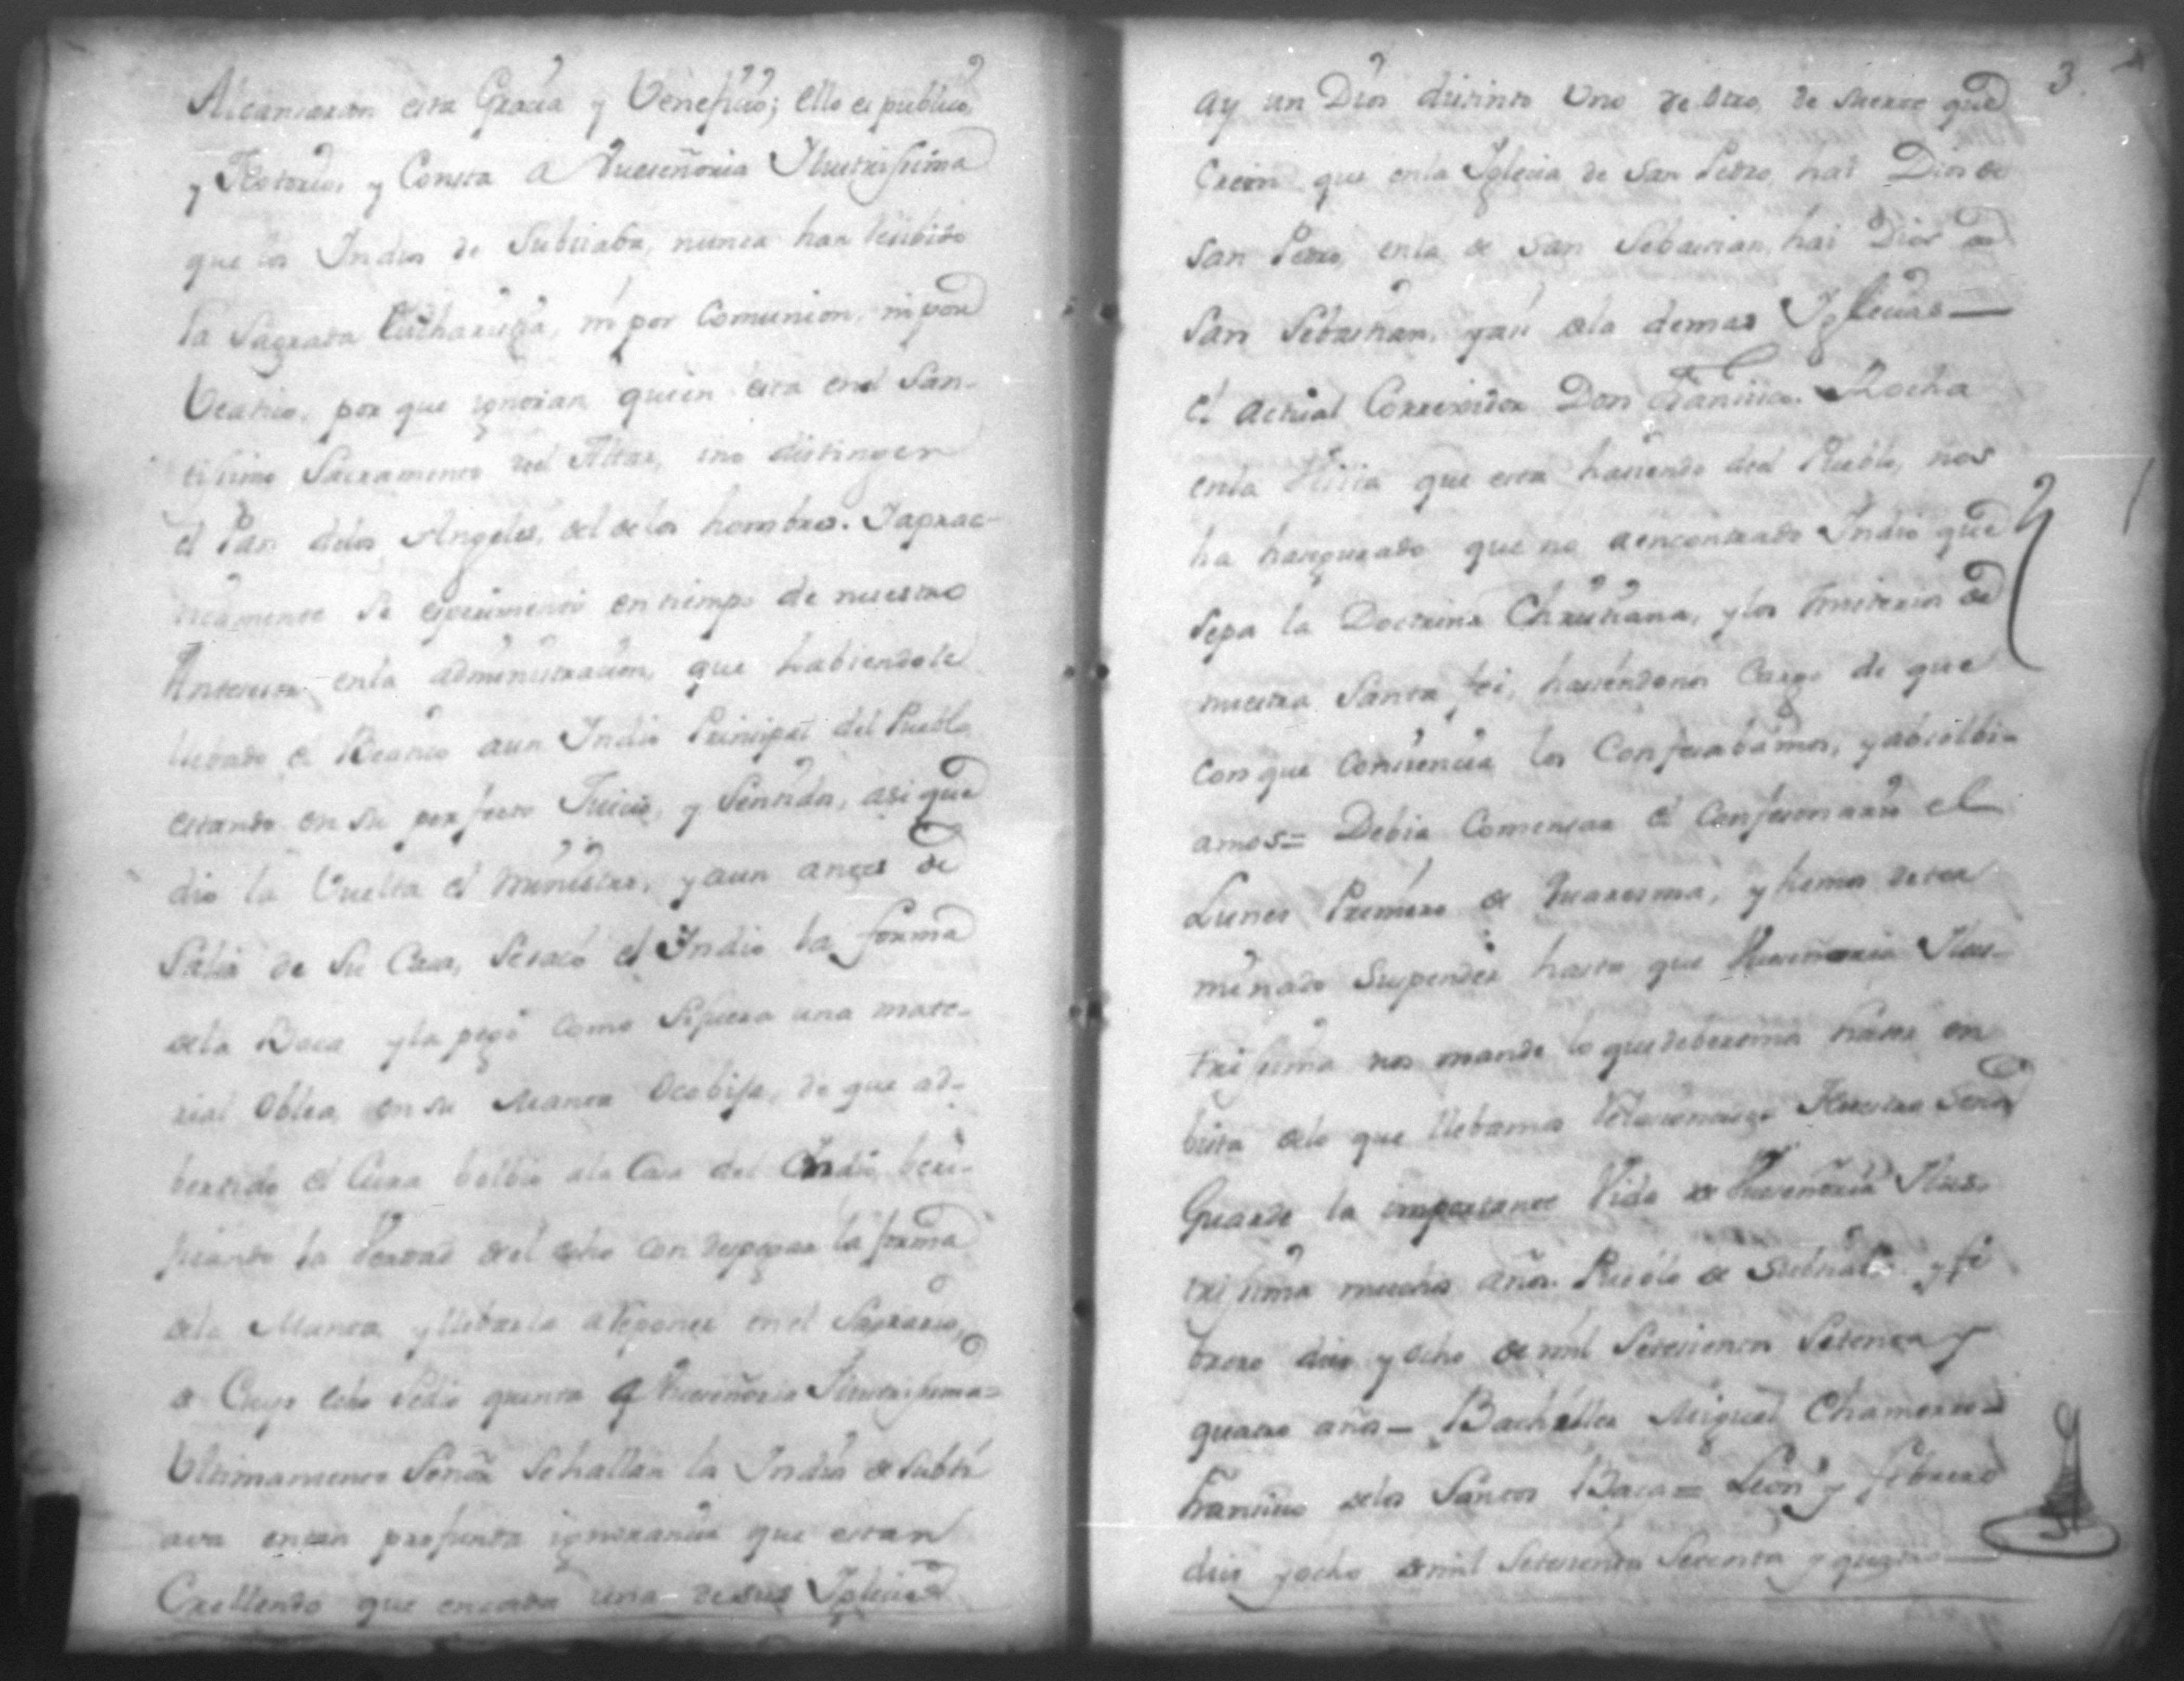 Alcansaran esta Gracia y Veneficio; ello es publico,
y Notorio, y Consta a Vueseñoria Ilustrissima
que los Indios de Subtiaba, nunca han recibido
la Sagrada Eucharistia, ni por Comunion, ni por
Veatico, por que ignoran quien esta en el San-
tissimo Sacramento del Altar, ino distingen
el Pan delos Angeles, del delos hombres. Iaprac-
ticamente se esperimento en tiempo de nuestro
Antecesor enla administracion, que habiendole
llebado el Beatico aun Indio Principal del Pueblo
estando en su perfecto Juicio, y Sentido, asi que
dio la Vuelta el Ministro, y aun antes de
Salir de su Casa, Sesacó el Indio la forma
dela Boca yla pegó como sifuera una mate-
rial Oblea en su Manta Ocobija, de que ad-
bertido el Cura bolbio ala Casa del Indio beri-
ficando la Verdad del echo con despegar la forma
dela Manta, yllebarla a Reponer en el Sagrario,
de Cuyo echo Sedio quenta a Vueseñoria Ilustrissima=
Ultimamente Señor Sehallan los Indios de Subti
ava entan profunda ignorancia que estan
Crellendo que encada una desus Iglecias
3.
ay un Dios distinto Uno de otro, de suerte que
Creen que enla Iglecia de San Pedro, hai Dios de
San Pedro, enla de San Sebastian, hai Dios de
San Sebastian, yasi dela demas Iglecias—
el actual Corregidor Don Francisco Rocha
enla Visita que esta haciendo deel Pueblo, nos
ha hasegurado que no aencontrado Indio que
sepa la Doctrina Christiana, ylos Misterios de
nuestra Santa fei, haciendonos Cargo de que
con que conciencia los Confesabamos, yabsolbi-
amos= Debia Comensar el Confesionario el
Lunes Primero de Quaresma, y hemos deter
minado Suspender hasta que Vueseñoria Ilus-
trissima nos mande lo quedeberemos hacer en
bista delo que llebamos Relacionado Nuestro Señor
Guarde la importante Vida de Vueseñoria Ilus-
trissima muchos años. Pueblo de Subtiaba y fe
brero dies y ocho de mil Setecientos Setenta y
quatro años— Bachiller Miguel Chamorro=
Francisco delos Santos Baca= Leon y febrero
dies yocho demil Setecientos Setenta y quatro—